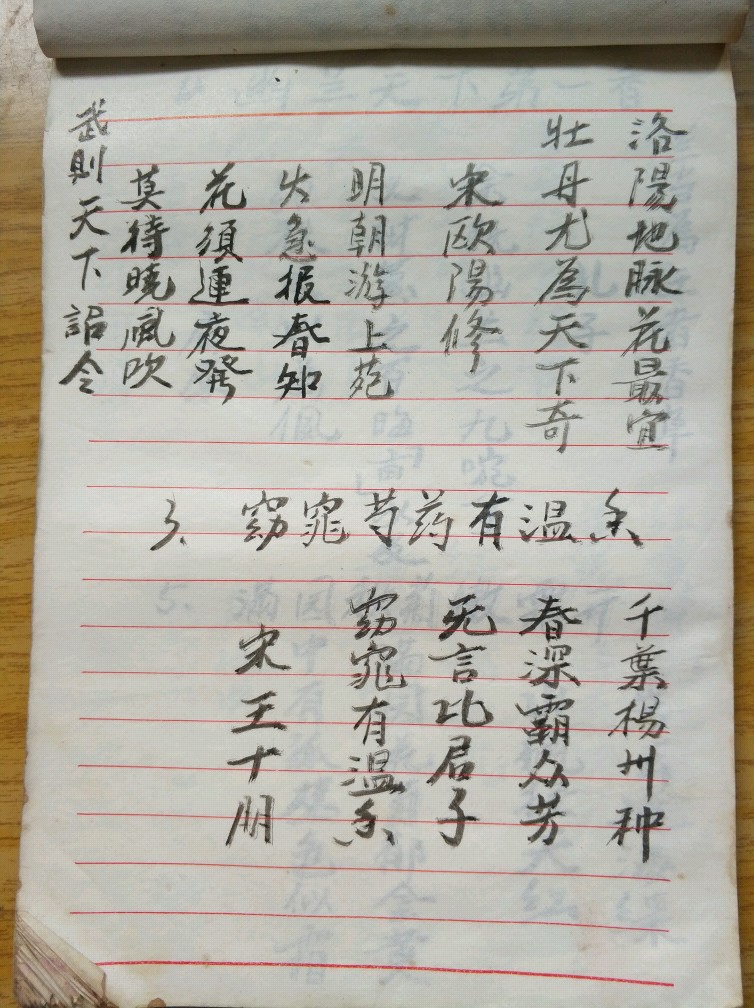 洛陽地脉花最宜
牡丹尤為天下奇
宋欧陽修
明朝游上苑
火急报春知
花須連夜發
莫待曉風吹
武則天下詔令
3、窈窕芍药有温香
千葉楊州种
春深霸众芳
无言比君子
窈窕有温香
宋王十朋